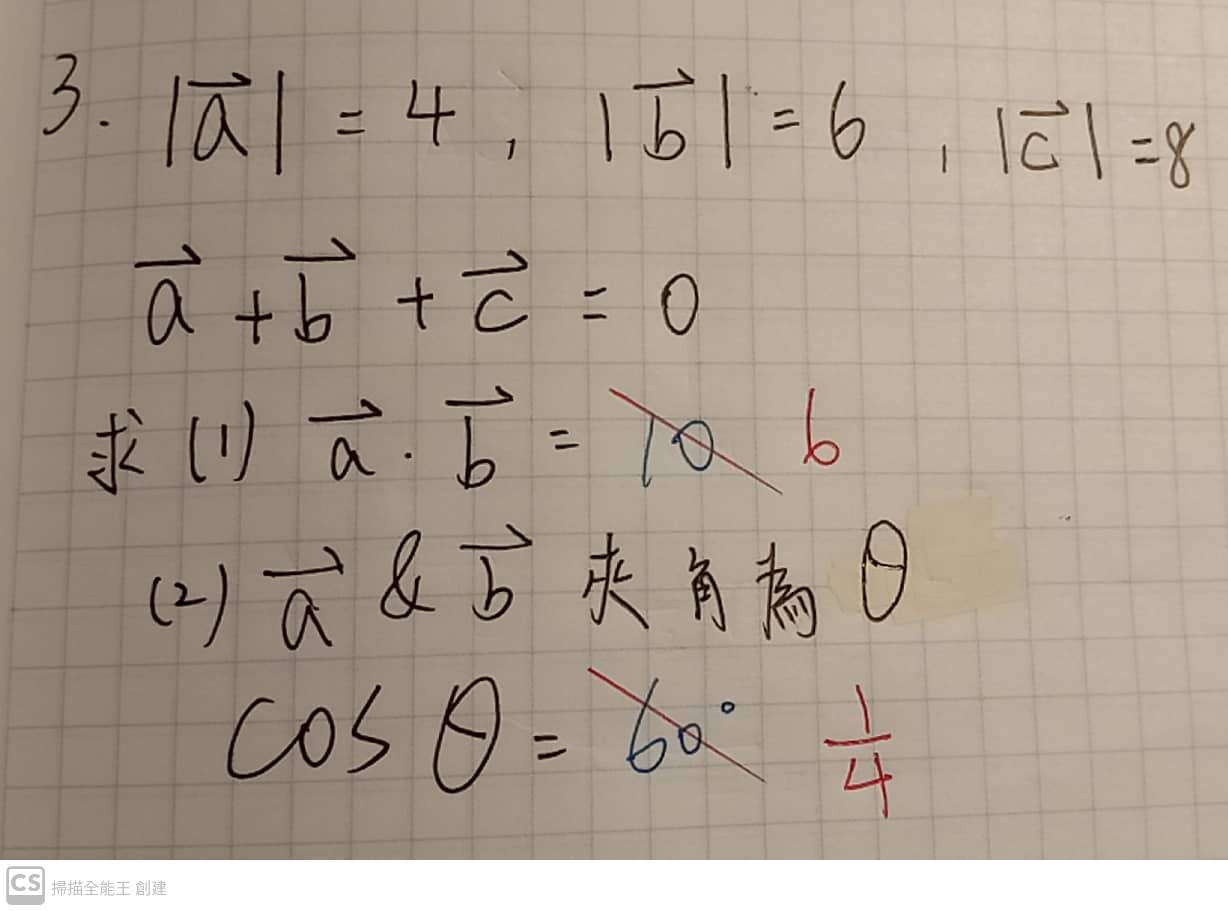 3. |a⃗| = 4 , |b⃗| = 6 , |c⃗| = 8
a⃗ + b⃗ + c⃗ = 0
求 (1) a⃗ · b⃗ = 10 6
(2) a⃗ & b⃗ 夾角為 θ
cos θ = 60° 1/4
CS 掃描全能王 創建